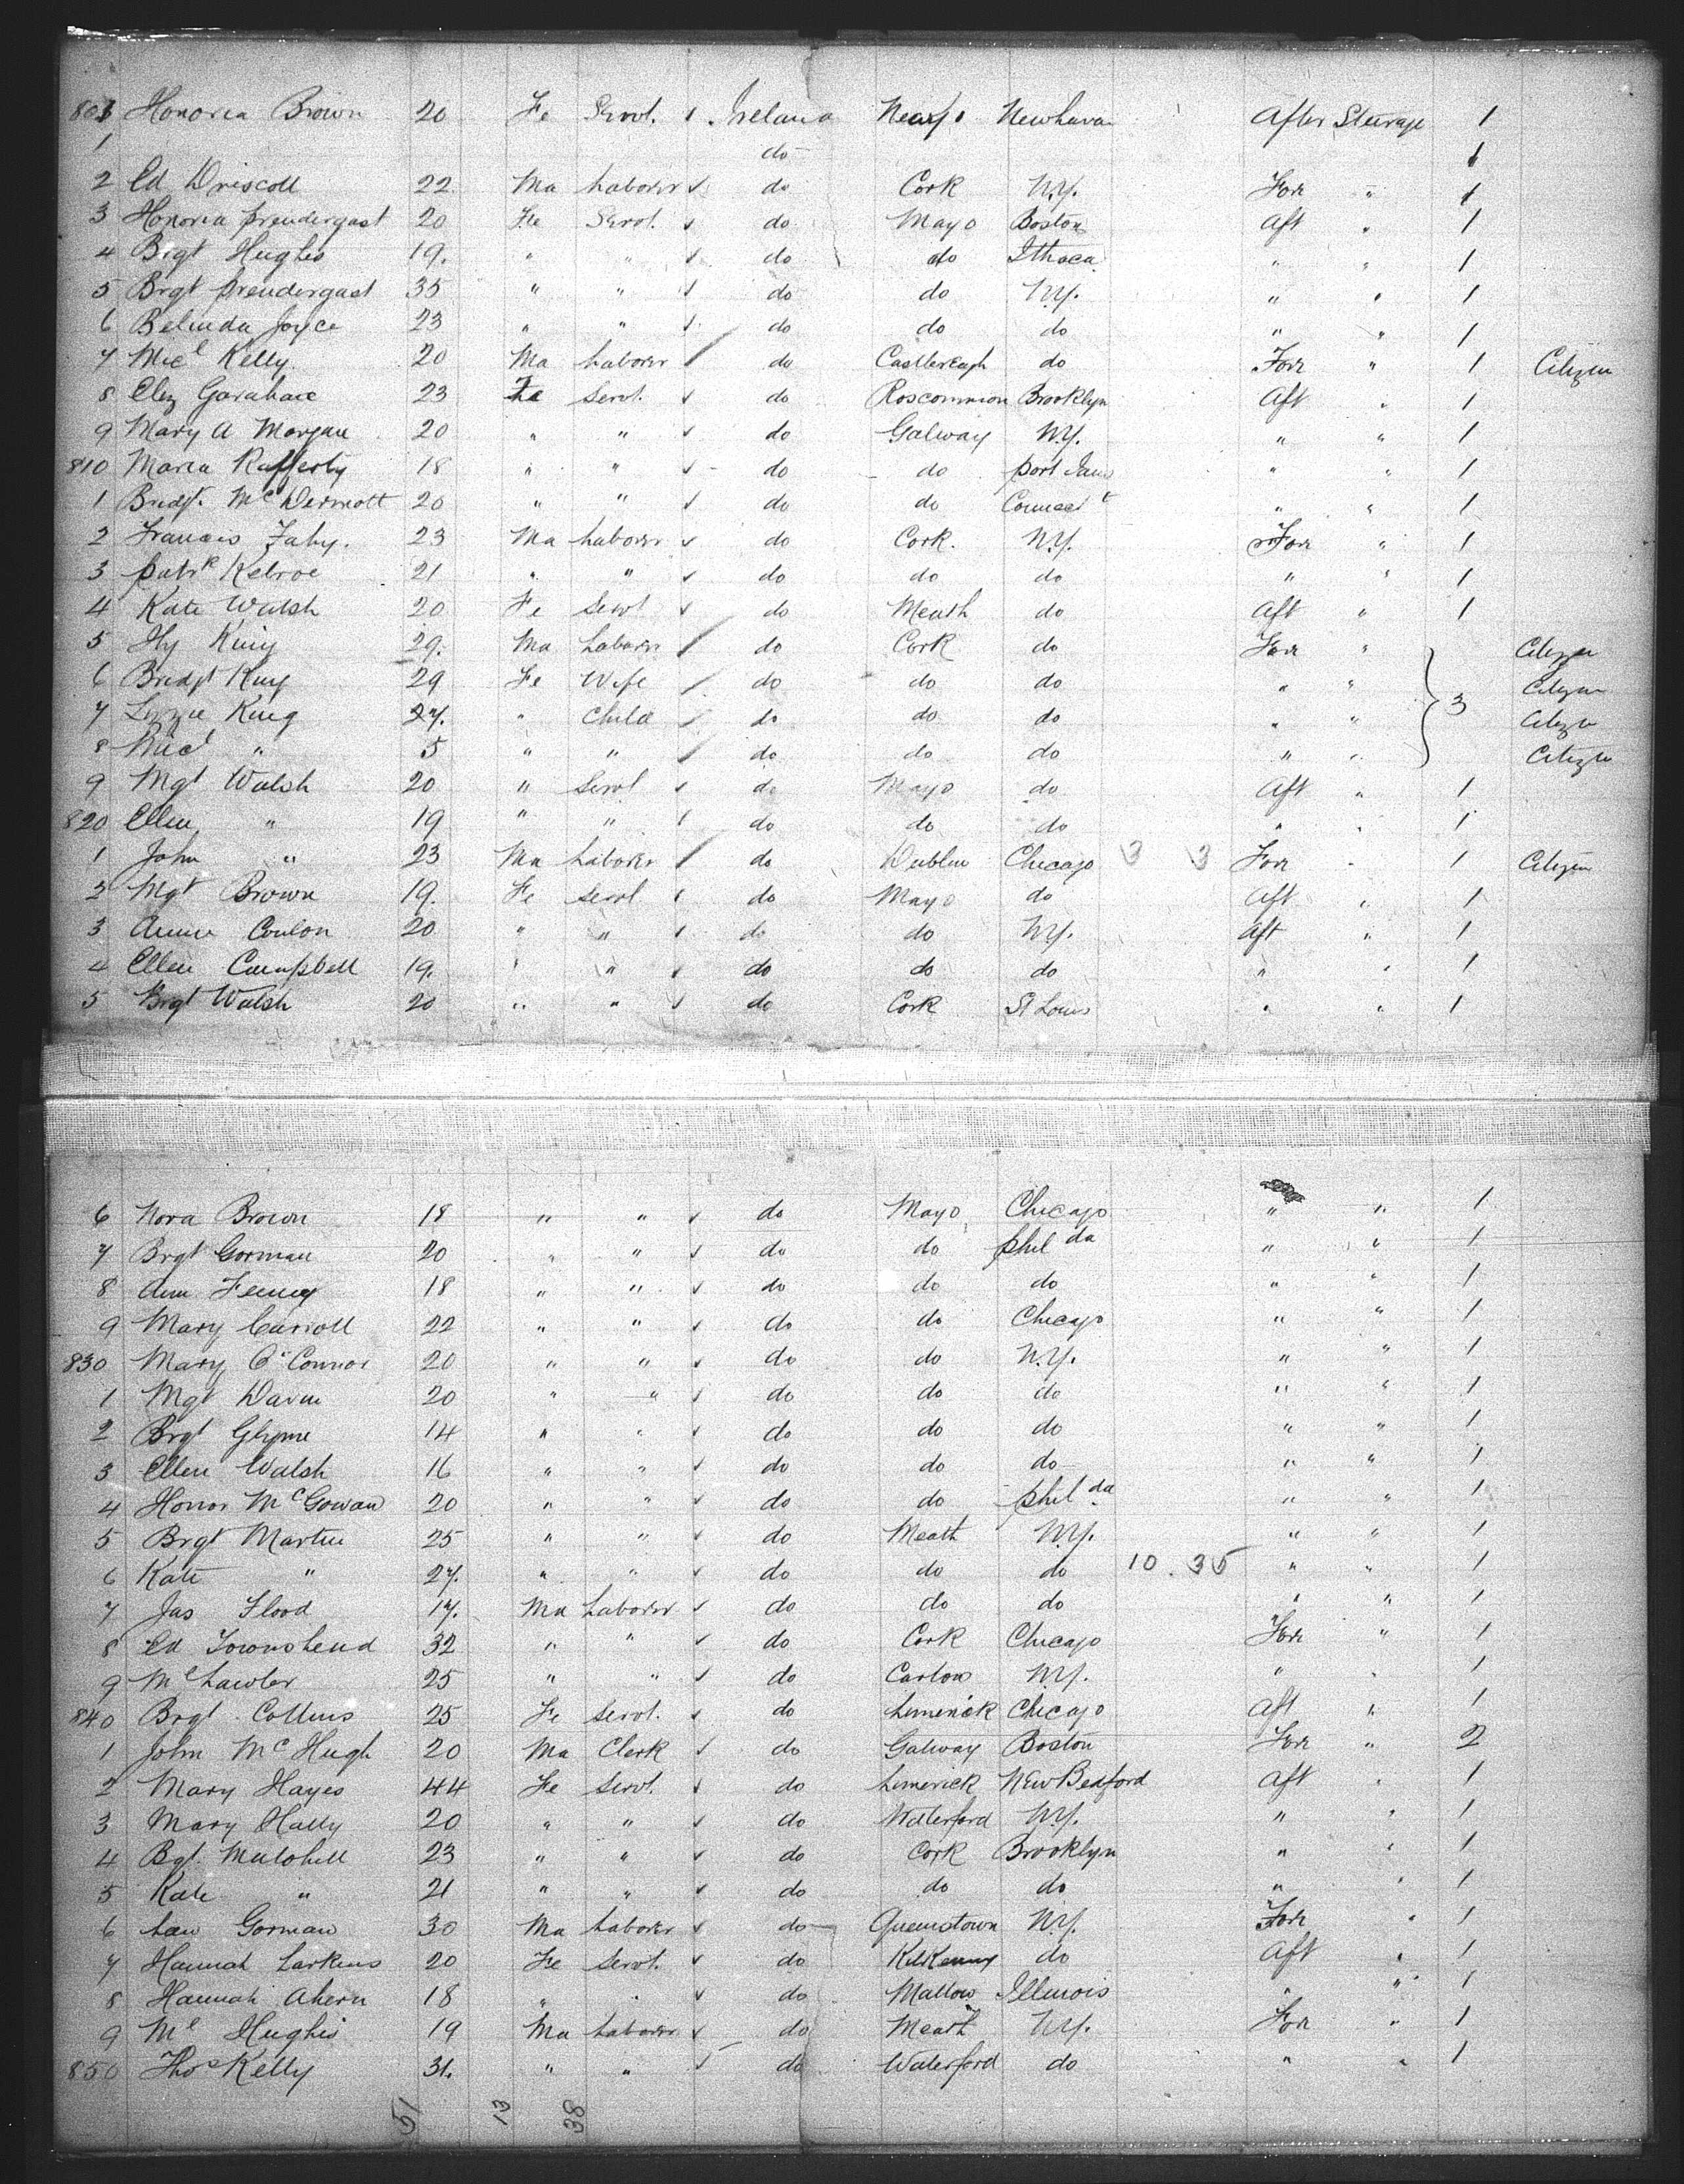 803 Honoria Brown 20 Fe Servt. Ireland Newpo After Steerage 1
1 do 1
2 Ed Driscoll 22 Ma Laborer do Cork N.Y. For " 1
3 Honoria Prendergast 20 Fe Servt. do Mayo Boston Aft " 1
4 Brgt Hughes 19. " " do do Ithaca " " 1
5 Brgt Prendergast 35 " " do do N.Y. " " 1
6 Belinda Joyce 23 " " do do do " " 1
7 Micl Kelly 20 Ma Laborer do Castlereagh do For " 1 Citizen
8 Eliz 23 Fe Servt. do Roscommon Brooklyn Aft " 1
9 Mary A Morgan 20 " " do Galway N.Y. " " 1
810 Maria Rafferty 18 " " do do port " " 1
1 Bridgt. McDermott 20 " " do do Connect t " " 1
2 Francis Fahy. 23 Ma Laborer do Cork. N.Y. For " 1
3 Patrk 21 " " do do do " " 1
4 Kate Walsh 20 Fe Servt do Meath do Aft " 1
5 Hy King 29. Ma Laborer do Cork do For " Citizen
6 Bridgt King 29 Fe Wife do do do " " 3 Citizen
7 Lizzie King 7. " Child do do do " " Citizen
8 Micl " 5 " " do do do " " Citizen
9 Mgt Walsh 20 " Servt do Mayo do Aft " 1
820 Ellen " 19 " " do do do " " 1
1 John " 23 Ma Laborer do Dublin Chicago 3 3 For " 1 Citizen
2 Mgt Brown 19. Fe Servt do Mayo do Aft " 1
3 Annie Conlon 20 " " do do N.Y. Aft " 1
4 Ellen Campbell 19. " " do do do " " 1
5 Brgt Walsh 20 " " do Cork St Louis " " 1
6 Nora Brown 18 " " do Mayo Chicago " " 1
7 Brgt Gorman 20 " " do do Phil da " " 1
8 Ann Feeney 18 " " do do do " " 1
9 Mary Carroll 22 " " do do Chicago " " 1
830 Mary O'Connor 20 " " do do N.Y. " " 1
1 Mgt Davin 20 " " do do do " " 1
2 Brgt Glynne 14 " " do do do " " 1
3 Ellen Walsh 16 " " do do do " " 1
4 Honor McGowan 20 " " do do Phil da " " 1
5 Brgt Martin 25 " " do Meath N.Y. " " 1
6 Kate " 27. " " do do do 10.35 " " 1
7 Jas Flood 17. Ma Laborer do do do " " 1
8 Ed Townshend 32 " " do Cork Chicago For " 1
9 Ml Lawler 25 " " do Carlow N.Y. " " 1
840 Brgt Collins 25 Fe Servt. do Limerick Chicago Aft " 1
1 John McHugh 20 Ma Clerk do Galway Boston For " 2
2 Mary Hayes 44 Fe Servt. do Limerick New Bedford Aft " 1
3 Mary Hally 20 " " do Waterford N.Y. " " 1
4 Bgt. Mulohill 23 " " do Cork Brooklyn " " 1
5 Kate " 21 " " do do do " " 1
6 Law Gorman 30 Ma Laborer do Queenstown N.Y. For " 1
7 Hannah Larkins 20 Fe Servt. do Kilkenny do Aft " 1
8 Hannah Ahern 18 " " do Mallow Illinois " " 1
9 Ml Hughes 19 Ma Laborer do Meath N.Y. For " 1
850 Thos Kelly 31. " " do Waterford do " " 1
51 13 38